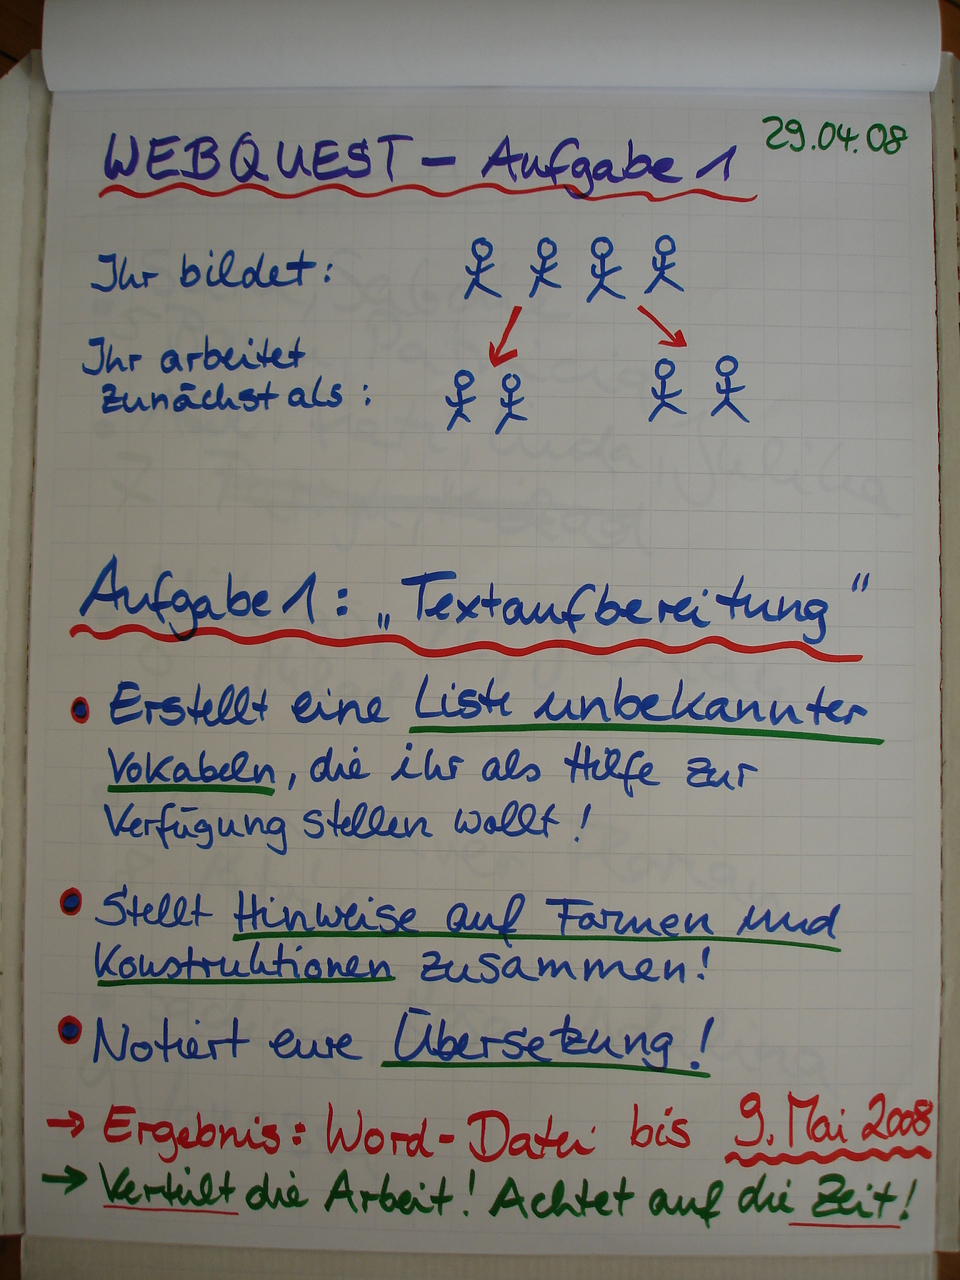 29.04.08
WEBQUEST - Aufgabe 1
Ihr bildet:
Ihr arbeitet
zunächst als:
Aufgabe 1: „Textaufbereitung“
• Erstellt eine Liste unbekannter
Vokabeln, die ihr als Hilfe zur
Verfügung stellen wollt!
• Stellt Hinweise auf Formen und
Konstruktionen zusammen!
• Notiert eure Übersetzung!
→ Ergebnis: Word-Datei bis 9. Mai 2008
→ Verteilt die Arbeit! Achtet auf die Zeit!